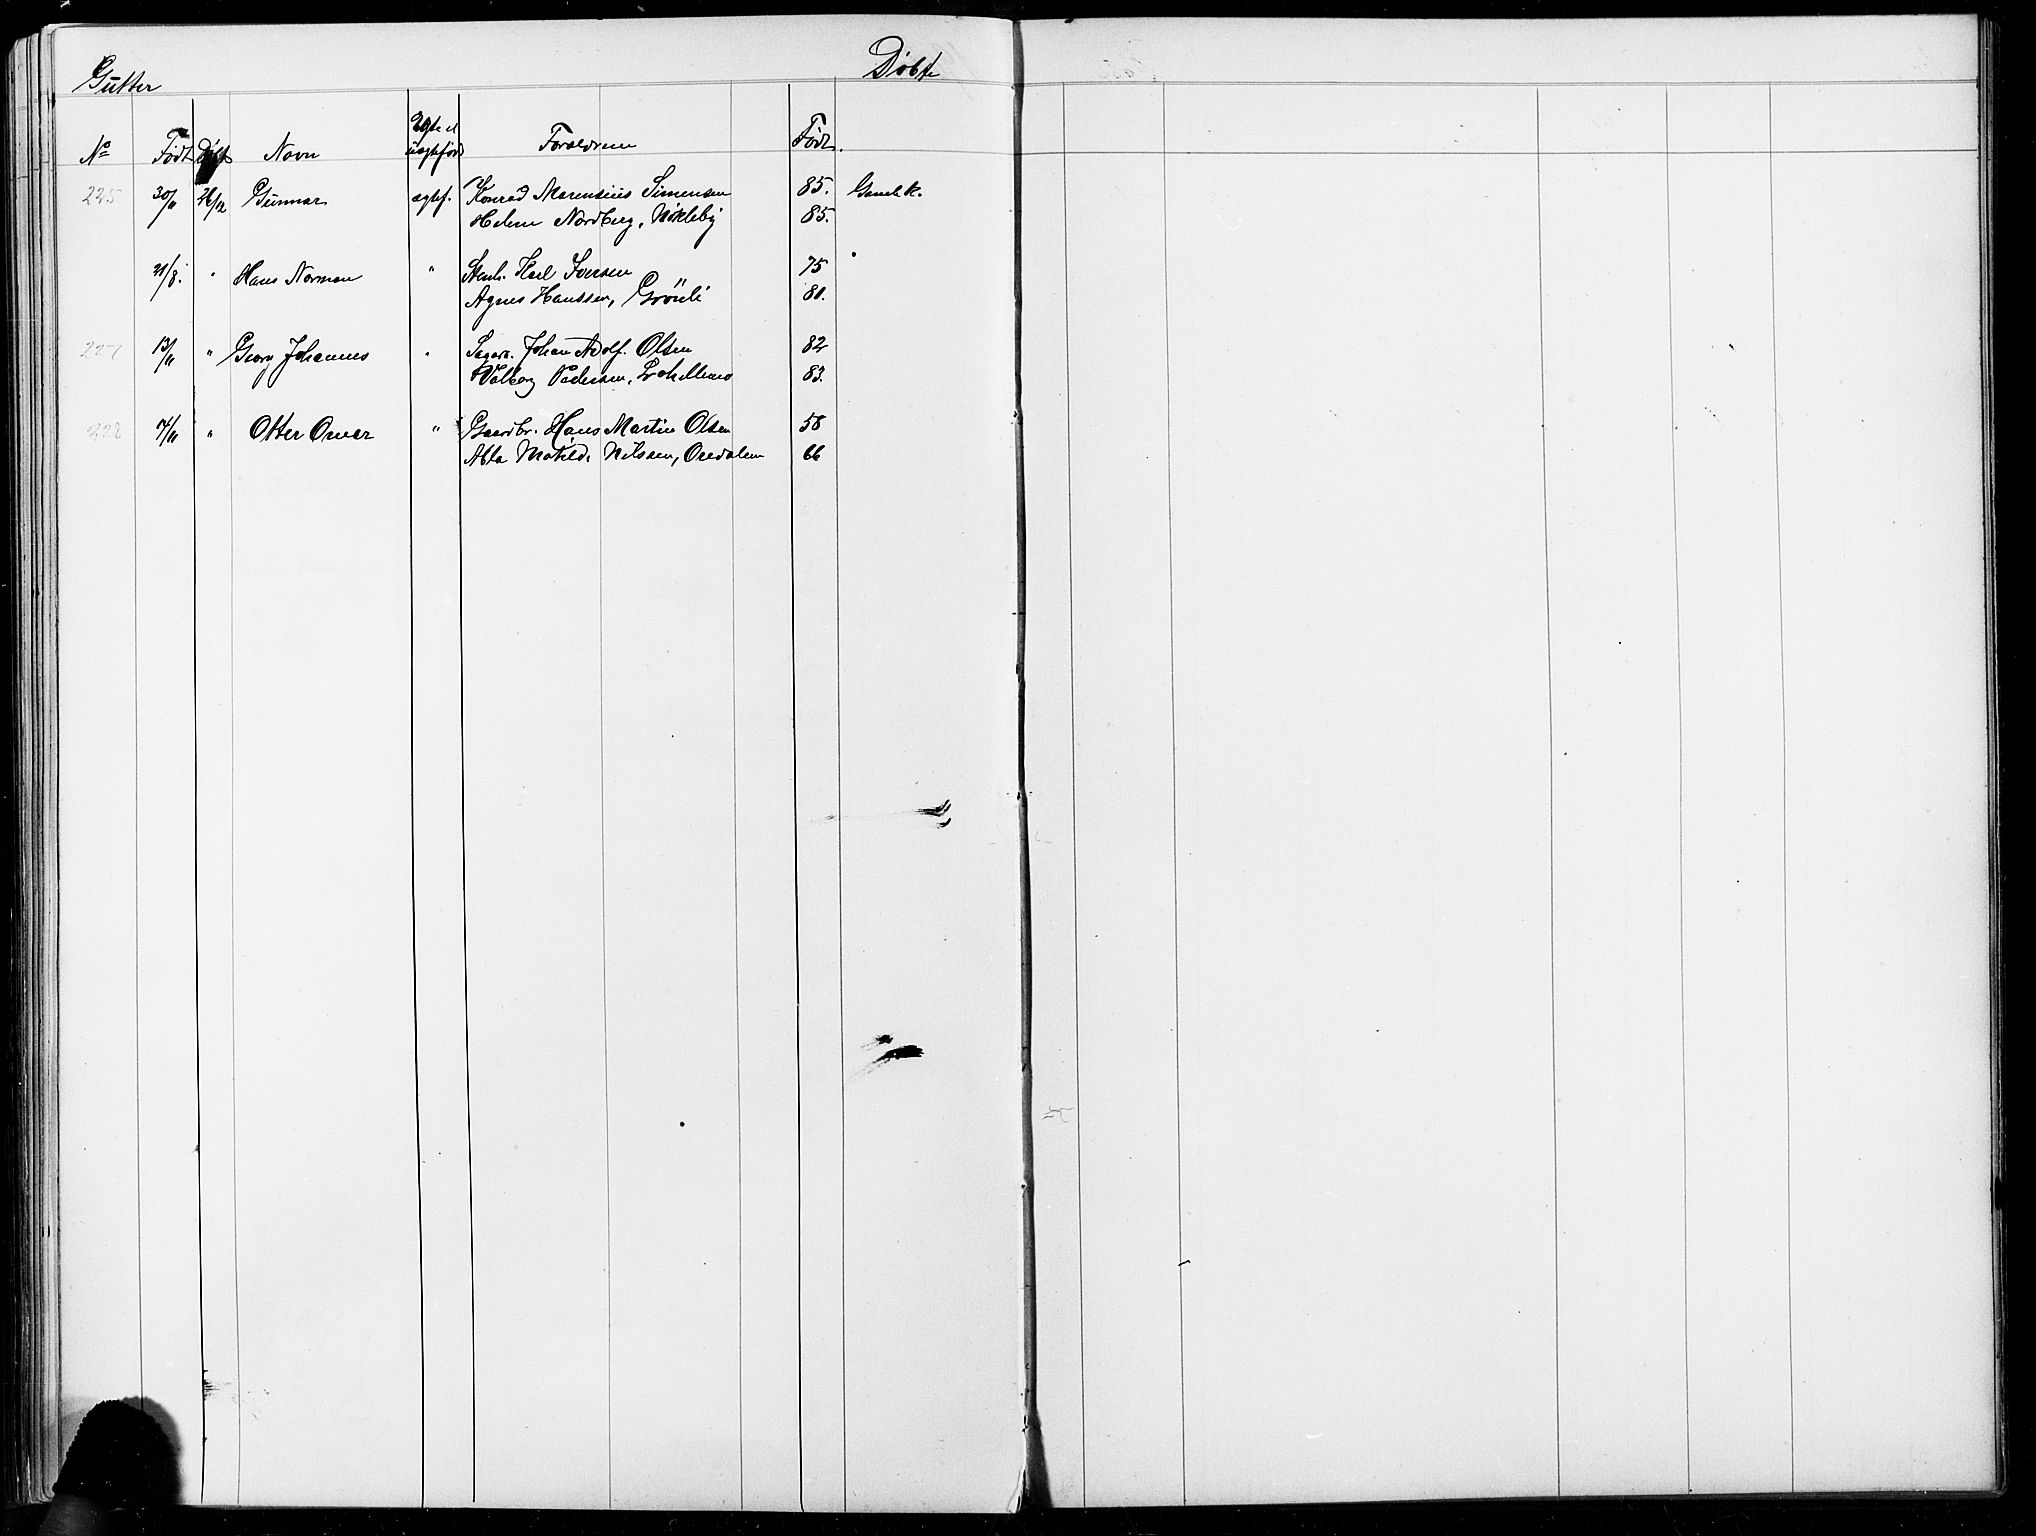 Gutter Døbte
No Født Døbt Navn Ægte el uægtefødt Forældrene Født.
225 30/11 26/12 Gunnar ægtef. Konrad Marensius Simensen 85. Gamle k.
Helene Nordberg, Nøkleby 85.
21/8. " Hans Norman " Karl Iversen 75 "
Agnes Hanssen, Grönli 80.
227 13/11 " Georg Johannes " Sagarb. Johan Adolf Olsen 82
Valborg Pedersen, 83.
228 " Otter Onar " Gaardbr. Hans Martin Olsen 58
Abla Matilde Nilssen, Oredalen 66